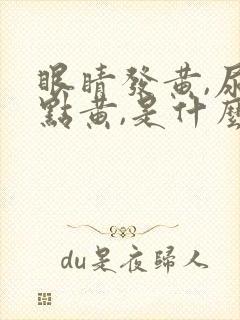 眼睛發黃,尿
點黃,是什麼
du是夜歸人